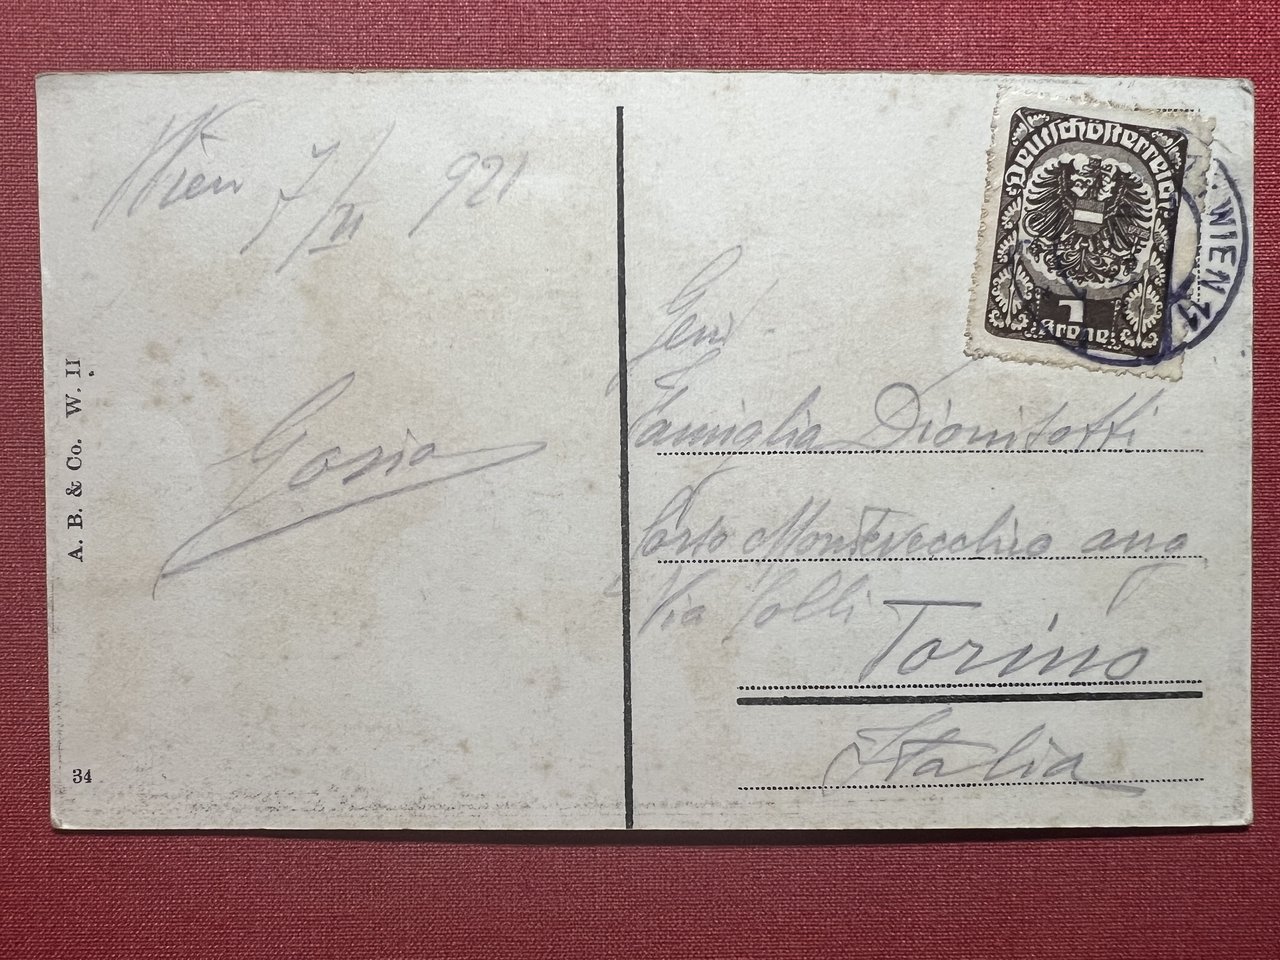 Wien 7/II 921
Deutschösterreich
1
Krone
WIEN 11
Gent.
Famiglia Dionisotti
Corso Montevecchio ang
Via Colli
Torino
Italia
A. B. & Co. W. II
34